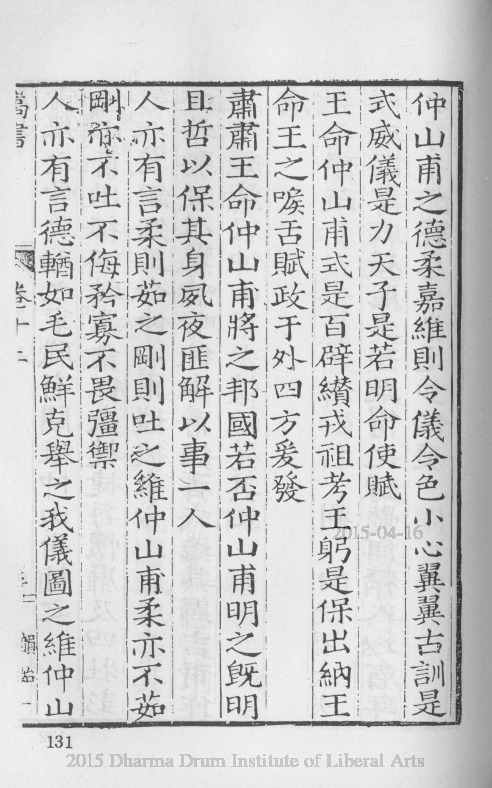 仲山甫之德柔嘉維則令儀令色小心翼翼古訓是
式威儀是力天子是若明命使賦
王命仲山甫式是百辟纉戎祖考王躬是保出納王
命王之喉舌賦政于外四方爰發
肅肅王命仲山甫將之邦國若否仲山甫明之旣明
且哲以保其身夙夜匪解以事一人
人亦有言柔則茹之剛則吐之維仲山甫柔亦不茹
剛亦不吐不侮矜寡不畏彊禦
人亦有言德輶如毛民鮮克舉之我儀圖之維仲山
卷十二
131
2015-04-16
2015 Dharma Drum Institute of Liberal Arts